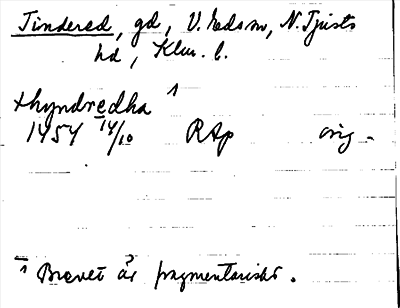 Tindered, gd, V. Eds sn, N. Tjusts
hd, Klm. l.
thyndredha ¹
1454 14/10 RAp orig.
¹ Brevet är fragmentariskt.